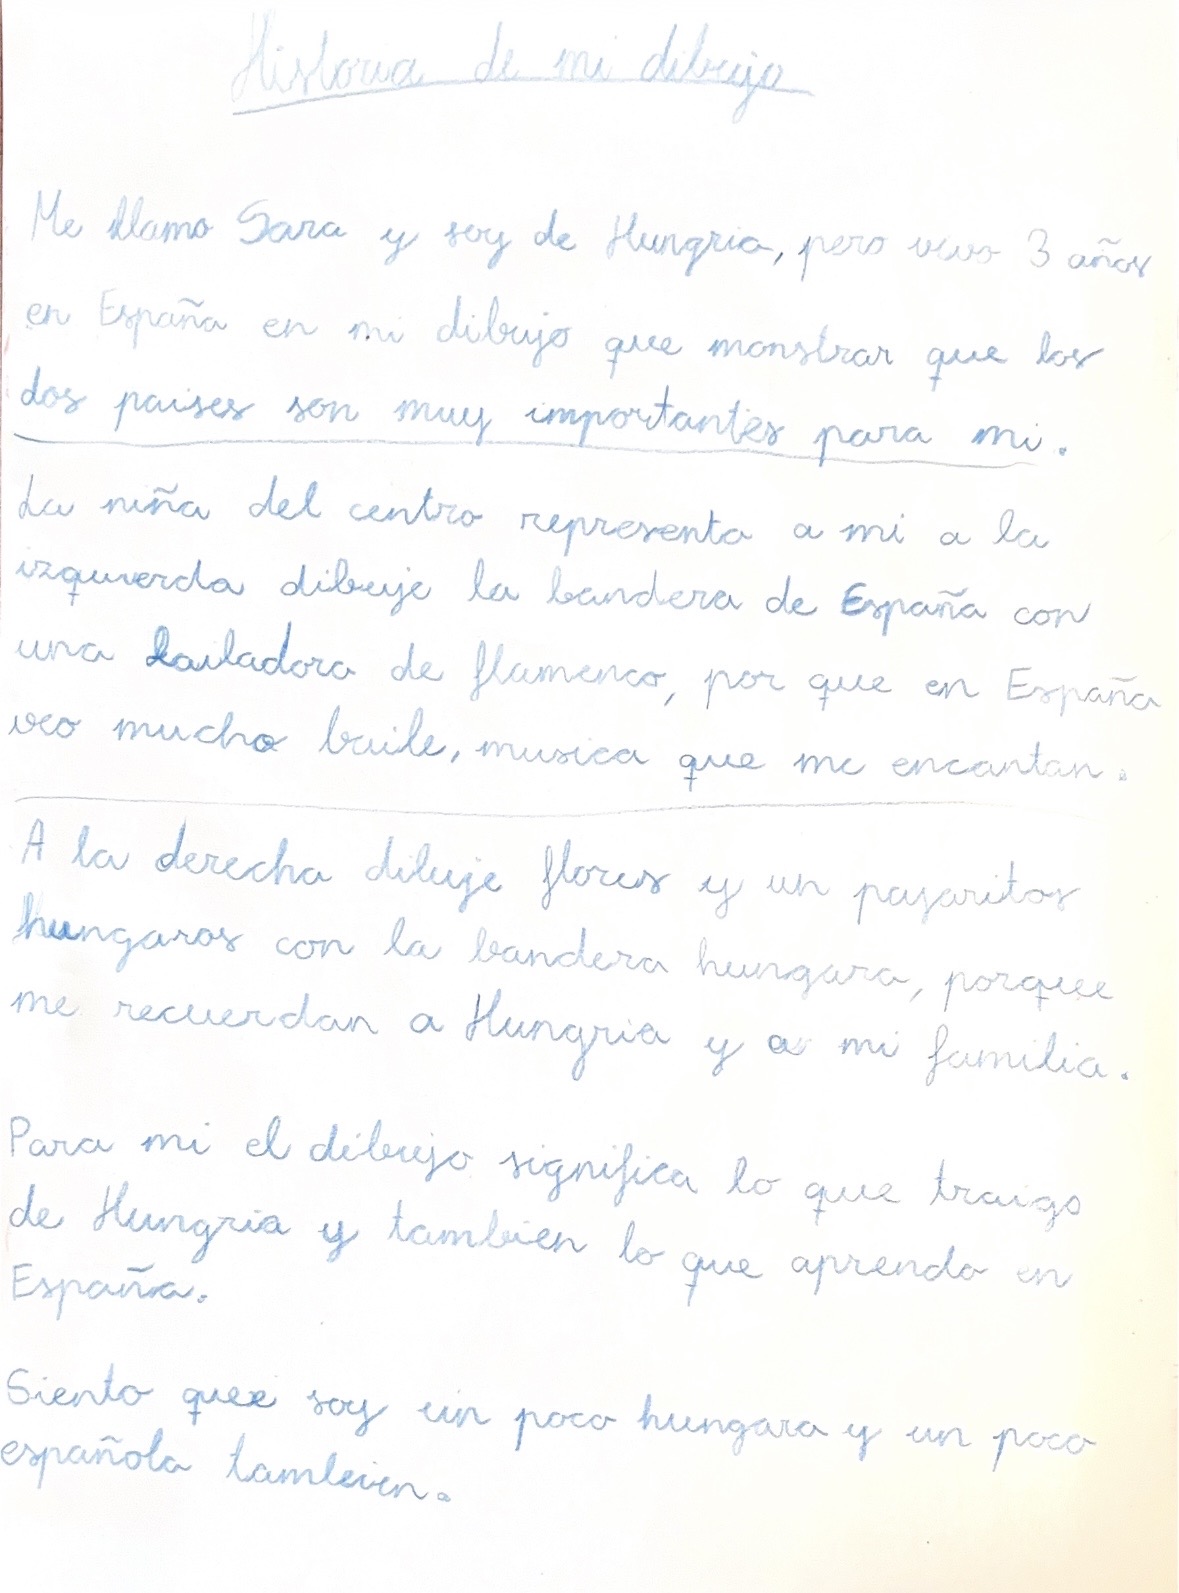 Historia de mi dibujo
Me llamo Sara y soy de Hungria, pero vivo 3 años
en España en mi dibujo que monstrar que los
dos paises son muy importantes para mi.
La niña del centro representa a mi a la
izquierda dibuje la bandera de España con
una bailadora de flamenco, por que en España
veo mucho baile, musica que me encantan.
A la derecha dibuje flores y un pajaritos
hungaros con la bandera hungara, porque
me recuerdan a Hungria y a mi familia.
Para mi el dibujo significa lo que traigo
de Hungria y tambien lo que aprendo en
España.
Siento que soy un poco hungara y un poco
española tambien.